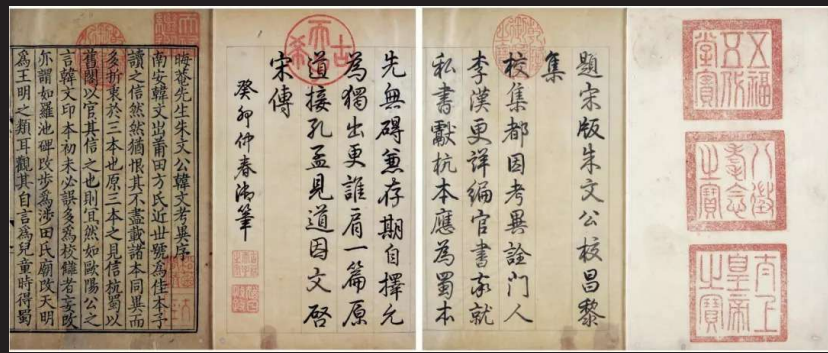 五福五代堂寶
八徵耄念之寶
太上皇帝之寶
題宋版朱文公校昌黎
集
校集都因考異詮門人
李漢更詳編官書家就
私書獻杭本應為蜀本
古希天子
先無碍兼存期自擇允
為獨出更誰肩一篇原
道接孔孟見道因文啓
宋傳
癸卯仲春御筆
晦菴先生朱文公韓文考異序
南安韓文出莆田方氏近世號為佳本予
讀之信然然猶恨其不盡載諸本同異而
多折衷於三本也原三本之見信杭蜀以
舊閣以官其信之也則宜然如歐陽公之
言韓文印本初未必誤多為校讎者妄改
亦謂如羅池碑改步為涉田氏廟改天明
為王明之類耳觀其自言為兒童時得蜀